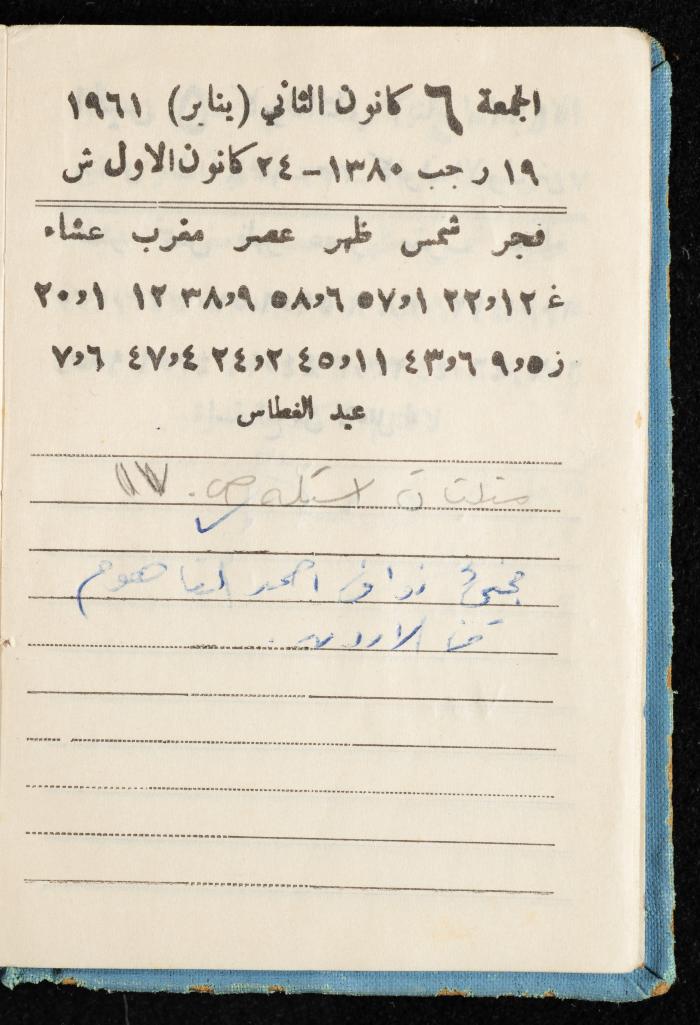 الجمعة ٦ كانون الثاني (يناير) ١٩٦١
١٩ رجب ١٣٨٠ – ٢٤ كانون الاول ش
فجر شمس ظهر عصر مغرب عشاء
غ ١٢و٢٢ ١و٥٧ ٦و٥٨ ٩و٣٨ ١٢ ١و٢٠
ز ٥و٩ ٦و٤٣ ١١و٤٥ ٢و٢٤ ٤و٤٧ ٦و٧
عيد الغطاس
١١٧
احمد الفاهوم
الاردن.